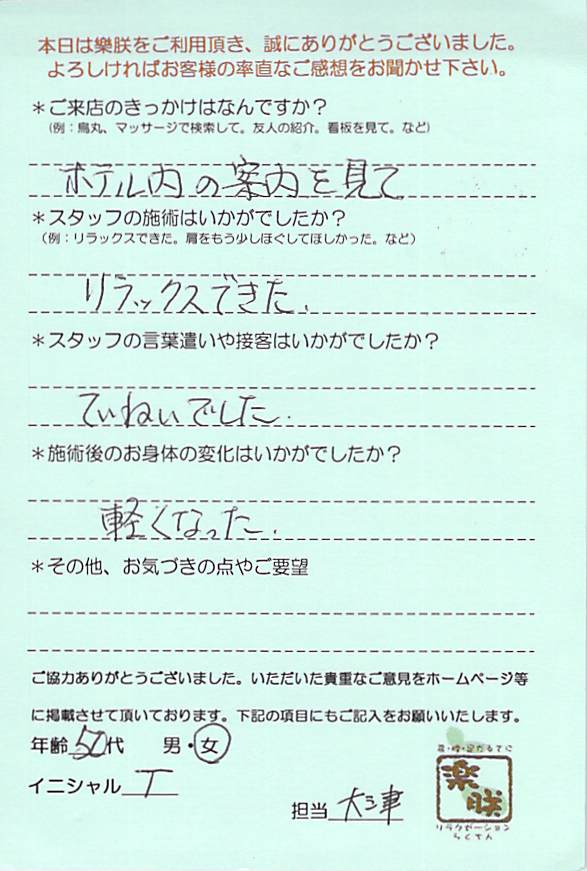 本日は樂朕をご利用頂き、誠にありがとうございました。
よろしければお客様の率直なご感想をお聞かせ下さい。
＊ご来店のきっかけはなんですか？
(例：烏丸、マッサージで検索して。友人の紹介。看板を見て。など)
ホテル内の案内を見て
＊スタッフの施術はいかがでしたか？
(例：リラックスできた。肩をもう少しほぐしてほしかった。など)
リラックスできた。
＊スタッフの言葉遣いや接客はいかがでしたか？
ていねいでした。
＊施術後のお身体の変化はいかがでしたか？
軽くなった。
＊その他、お気づきの点やご要望
ご協力ありがとうございました。いただいた貴重なご意見をホームページ等
に掲載させて頂いております。下記の項目にもご記入をお願いいたします。
年齢50代 男・女
イニシャル T
担当 大津
楽朕
リラクゼーション
らくちん